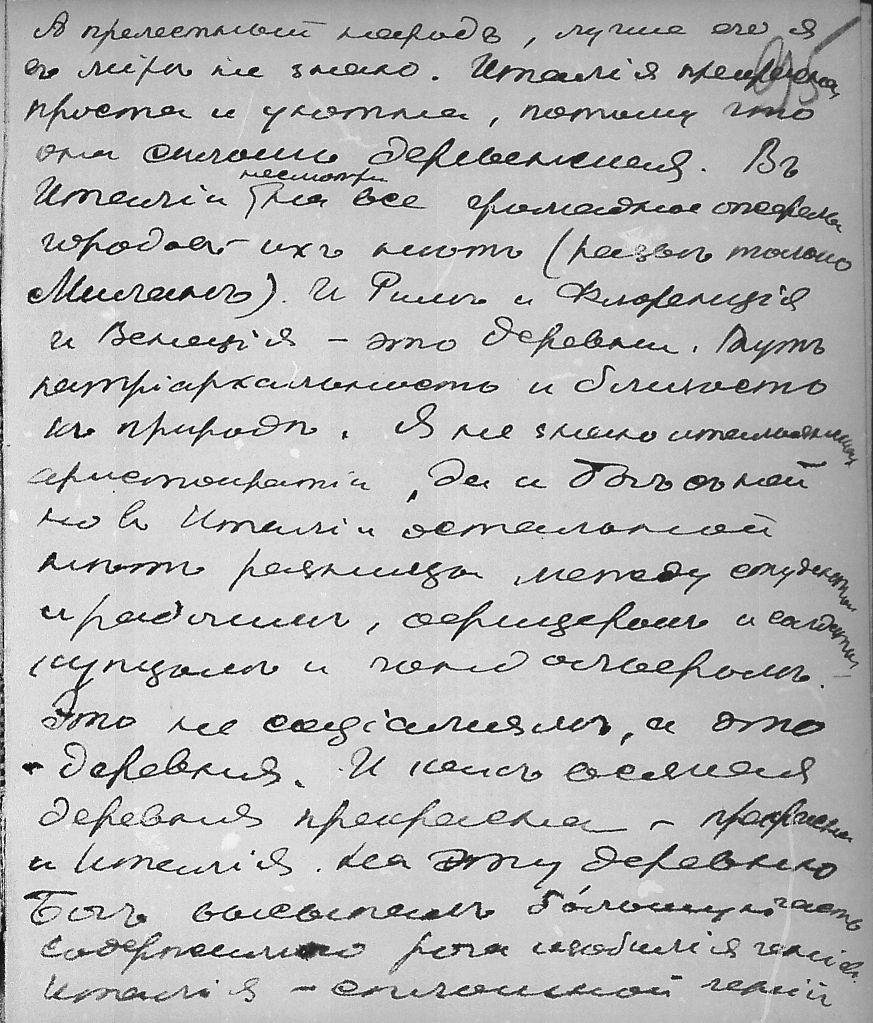 А прелестный народъ, лучше его я
въ мірѣ не знаю. Италія прекрасна,
проста и уютна, потому что
она сплошь деревенская. Въ
Италіи несмотря на все громадное
городовъ ихъ нѣтъ (развѣ только
Миланъ). И Римъ и Флоренція
и Венеція – это деревни. Тутъ
патріархальность и близость
къ природѣ. Я не знаю итальянской
аристократіи, да и Богъ съ ней
но въ Италіи остальной
нѣтъ разницы между студентомъ
и рабочимъ, офицеромъ и солдатомъ,
купцомъ и гондольеромъ.
Это не соціализмъ, а это
деревня. И какъ всякая
деревня прекрасна – прекрасна
и Италія. На эту деревню
Богъ высыпалъ бо́льшую часть
содержимаго рога изобилія генія.
Италія – сплошной геній